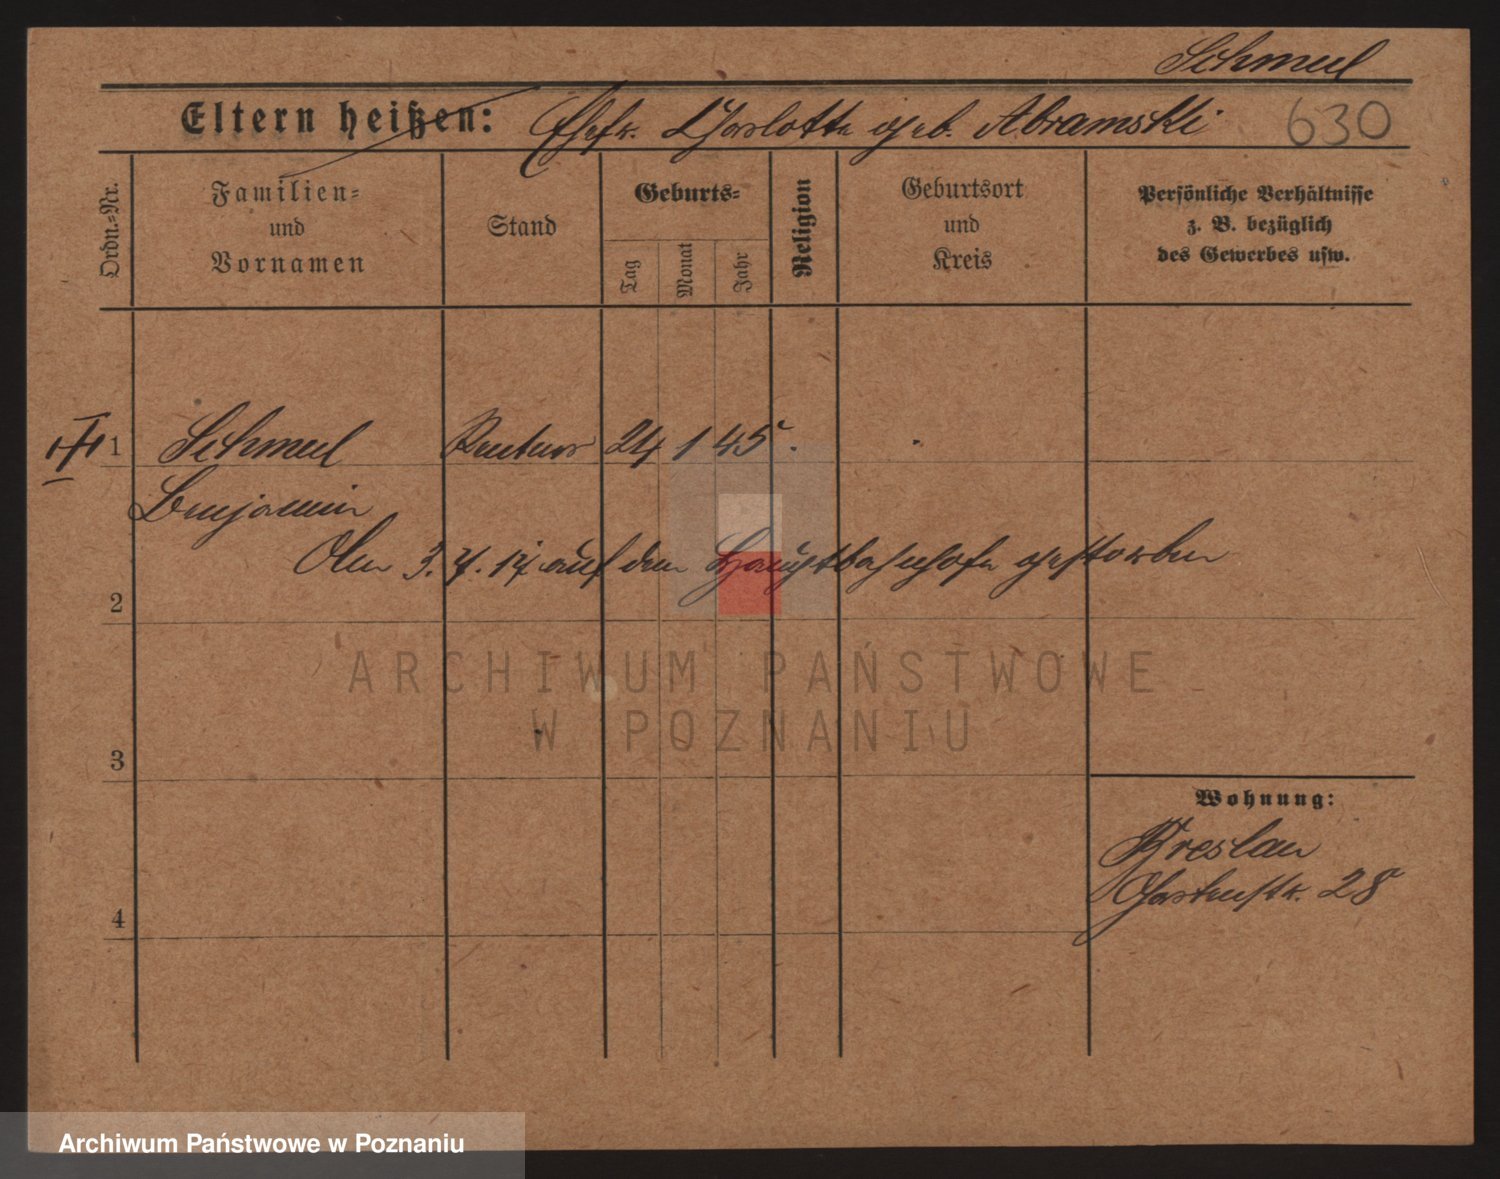 Schmul
Eltern heißen: Ehefr. Charlotte geb. Abramski 630
Ordn.=Nr.
Familien=
und
Vornamen
Stand
Geburts=
Tag
Monat
Jahr
Religion
Geburtsort
und
Kreis
Persönliche Verhältnisse
z. B. bezüglich
des Gewerbes usw.
1 Schmul Rentner 24 1 45.
Benjamin
Am 3. 4. 14 auf dem Hauptbahnhofe gestorben
2
ARCHIWUM PAŃSTWOWE
W POZNANIU
3
Wohnung:
Breslau
28
4
Archiwum Państwowe w Poznaniu